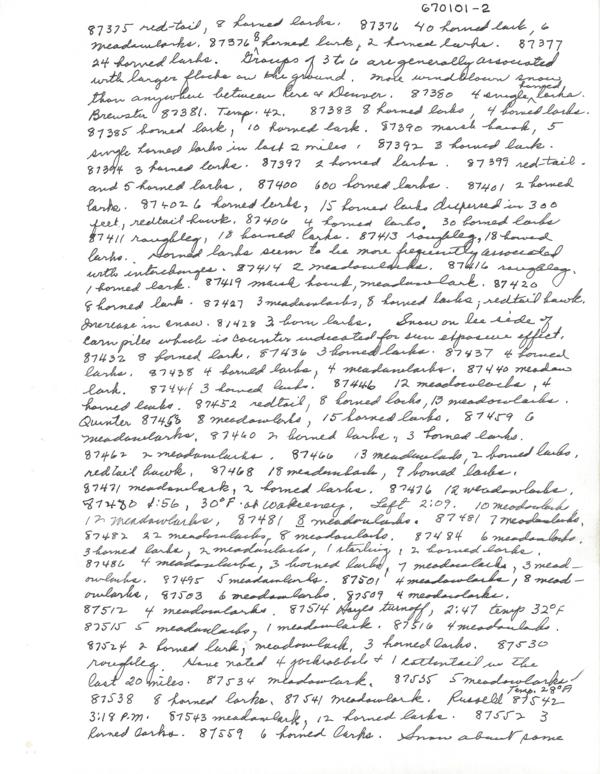 670101-2
87375 red-tail, 8 horned larks. 87376 40 horned lark, 6
meadowlarks. 87376 8 horned lark, 2 horned larks. 87377
24 horned larks. Groups of 3 to 6 are generally associated
with larger flocks on the ground. More windblown snow
than anywhere between here & Denver. 87380 4 single horned larks.
Brewster 87381. Temp. 42. 87383 8 horned larks, 4 horned larks.
87385 horned lark, 10 horned lark. 87390 marsh hawk, 5
single horned larks in last 2 miles. 87392 3 horned lark.
87394 3 horned larks. 87397 2 horned larks. 87399 red-tail.
and 5 horned larks. 87400 600 horned larks. 87401 2 horned
lark. 87402 6 horned larks, 15 horned larks dispersed in 300
feet, redtail hawk. 87406 4 horned larks, 30 horned larks
87411 roughleg, 18 horned larks. 87413 roughleg, 18 horned
larks. Horned larks seem to be more frequently associated
with interchanges. 87414 2 meadowlarks. 87416 roughleg.
1 horned lark. 87419 marsh hawk, meadowlark. 87420
8 horned lark. 87427 3 meadowlarks, 8 horned larks, redtail hawk.
Increase in snow. 81428 3 horn larks. Snow on lee side of
corn piles which is counter indicated for sun exposure effect.
87432 8 horned lark. 87436 3 horned larks. 87437 4 horned
larks. 87438 4 horned larks, 4 meadowlarks. 87440 meadow
lark. 87444 3 horned larks. 87446 12 meadowlarks, 4
horned larks. 87452 redtail, 8 horned larks, 13 meadowlarks.
Quinter 87458 8 meadowlarks, 15 horned larks. 87459 6
meadowlarks. 87460 2 horned larks, 3 horned larks.
87462 2 meadowlarks. 87466 13 meadowlarks, 2 horned larks,
redtail hawk. 87468 18 meadowlark, 9 horned larks.
87471 meadowlark, 2 horned larks. 87476 12 meadowlarks.
87480 1:56, 30°F at Wakeeney. Left 2:09. 10 meadowlark
12 meadowlarks, 87481 8 meadowlarks. 87481 7 meadowlarks.
87482 22 meadowlarks, 8 meadowlarks. 87484 6 meadowlarks.
3 horned larks, 2 meadowlarks, 1 starling, 2 horned larks.
87486 4 meadowlarks, 3 horned larks, 7 meadowlarks, 3 mead-
owlarks. 87495 5 meadowlarks. 87501 4 meadowlarks, 8 mead-
owlarks, 87503 6 meadowlarks. 87509 4 meadowlarks.
87512 4 meadowlarks. 87514 Hayes turnoff, 2:47 temp 32°F
87515 5 meadowlarks, 1 meadowlark. 87516 4 meadowlarks.
87524 2 horned lark, meadowlark, 3 horned larks. 87530
roughleg. Have noted 4 jackrabbits & 1 cottontail in the
last 20 miles. 87534 meadowlark. 87535 5 meadowlarks
87538 8 horned larks. 87541 meadowlark. Russell 87542 Temp. 28°F
3:18 P.M. 87543 meadowlark, 12 horned larks. 87552 3
horned larks. 87559 6 horned larks. Snow about some